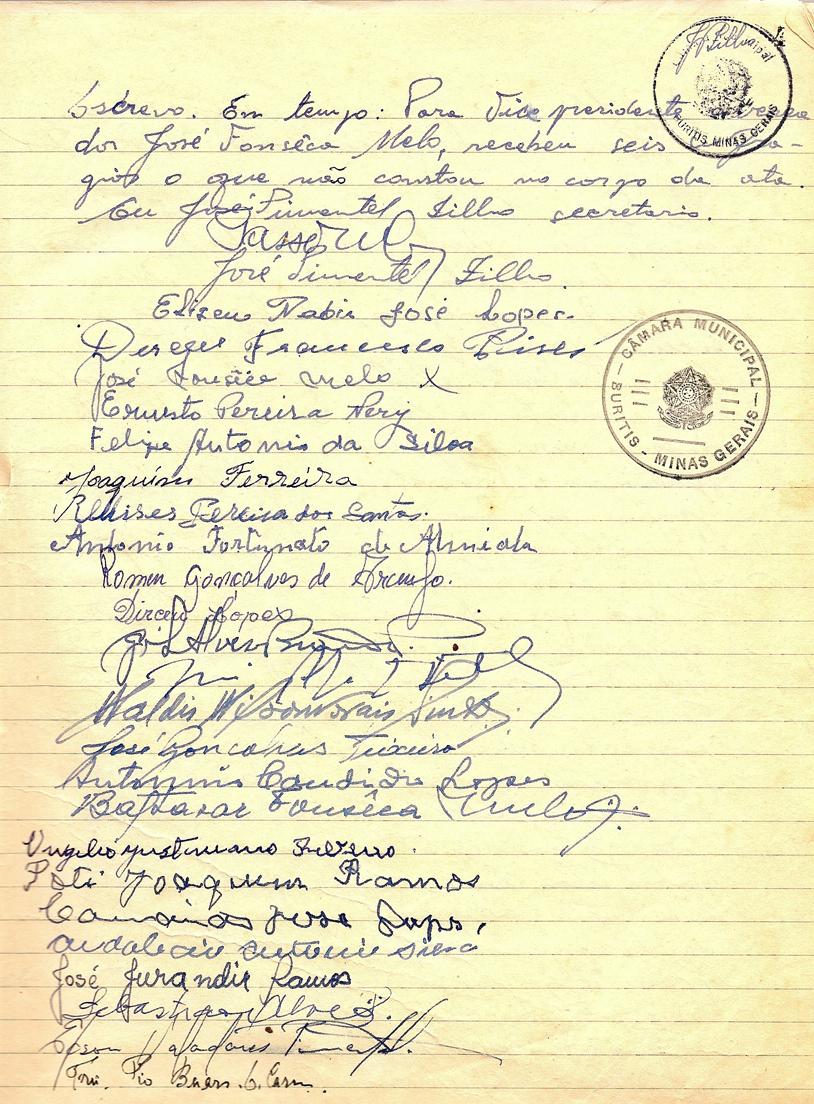 Escrevo. Em tempo: Para Vice presidente
dor José Fonsêca Melo, recebeu seis
gios o que não constou no corpo da ata.
Eu José Pimentel Filho secretario.
José Pimentel Filho
Eliseu Nabir José Lopes.
Francisco Pires
José Fonsêca Melo X
Ernesto Pereira Nery
Felipe Antonio da Silva
Joaquim Ferreira
Ulisses Pereira dos Santos.
Antonio Fortunato de Almeida
Romeu Gonçalves de Araujo.
Dirceu Lopes
Gil Alves
Waldir Wilson Morais Pinto
José Gonçalves Teixeira
Antonio Candido Lopes
Baltasar Fonsêca Melo
Justiniano
Joaquim Ramos
José
Antonio
José Jurandir Ramos
Sebastião Alves.
Valadares Pimentel
CÂMARA MUNICIPAL
BURITIS - MINAS GERAIS
BURITIS MINAS GERAIS